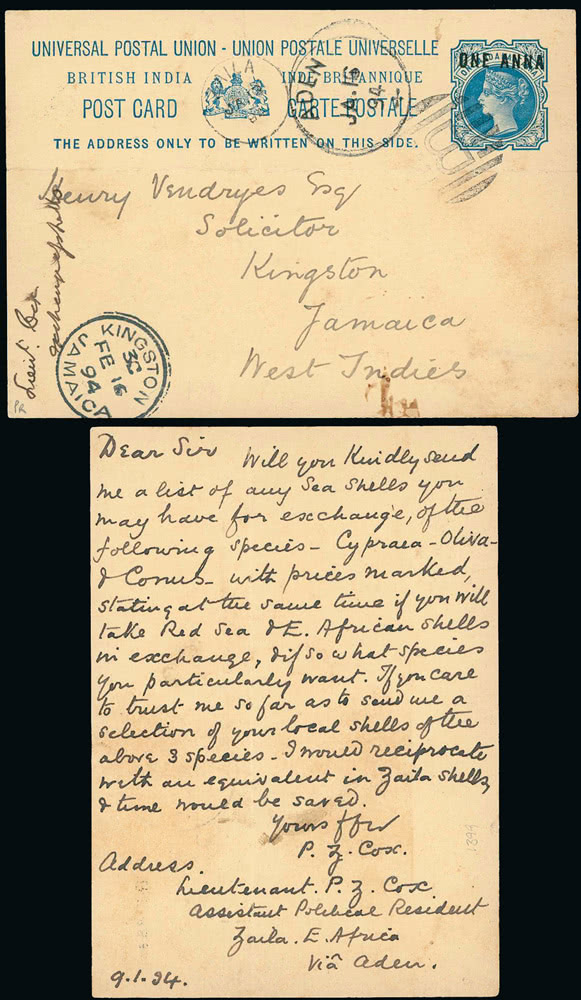 UNIVERSAL POSTAL UNION - UNION POSTALE UNIVERSELLE
BRITISH INDIA INDE BRITANNIQUE
POST CARD CARTE POSTALE
THE ADDRESS ONLY TO BE WRITTEN ON THIS SIDE.
ONE ANNA
ADEN
JA. 16
94
Henry Vendryes Esq
Solicitor
Kingston
Jamaica
West Indies
Lieut. Cox
exchange of shells
KINGSTON
FE 16
94
JAMAICA
Dear Sir Will you Kindly send
me a list of any Sea Shells you
may have for exchange, of the
following species - Cypraea - Oliva -
& Conus - with prices marked,
stating at the same time if you will
take Red Sea & E. African shells
in exchange, & if so what species
you particularly want. If you care
to trust me so far as to send me a
selection of your local shells of the
above 3 species - I would reciprocate
with an equivalent in Zaila shells,
& time would be saved.
Yours ffly
P. Z. Cox.
Address.
Lieutenant. P. Z. Cox
Assistant Political Resident
Zaila. E. Africa
Viâ Aden.
9.1.94.